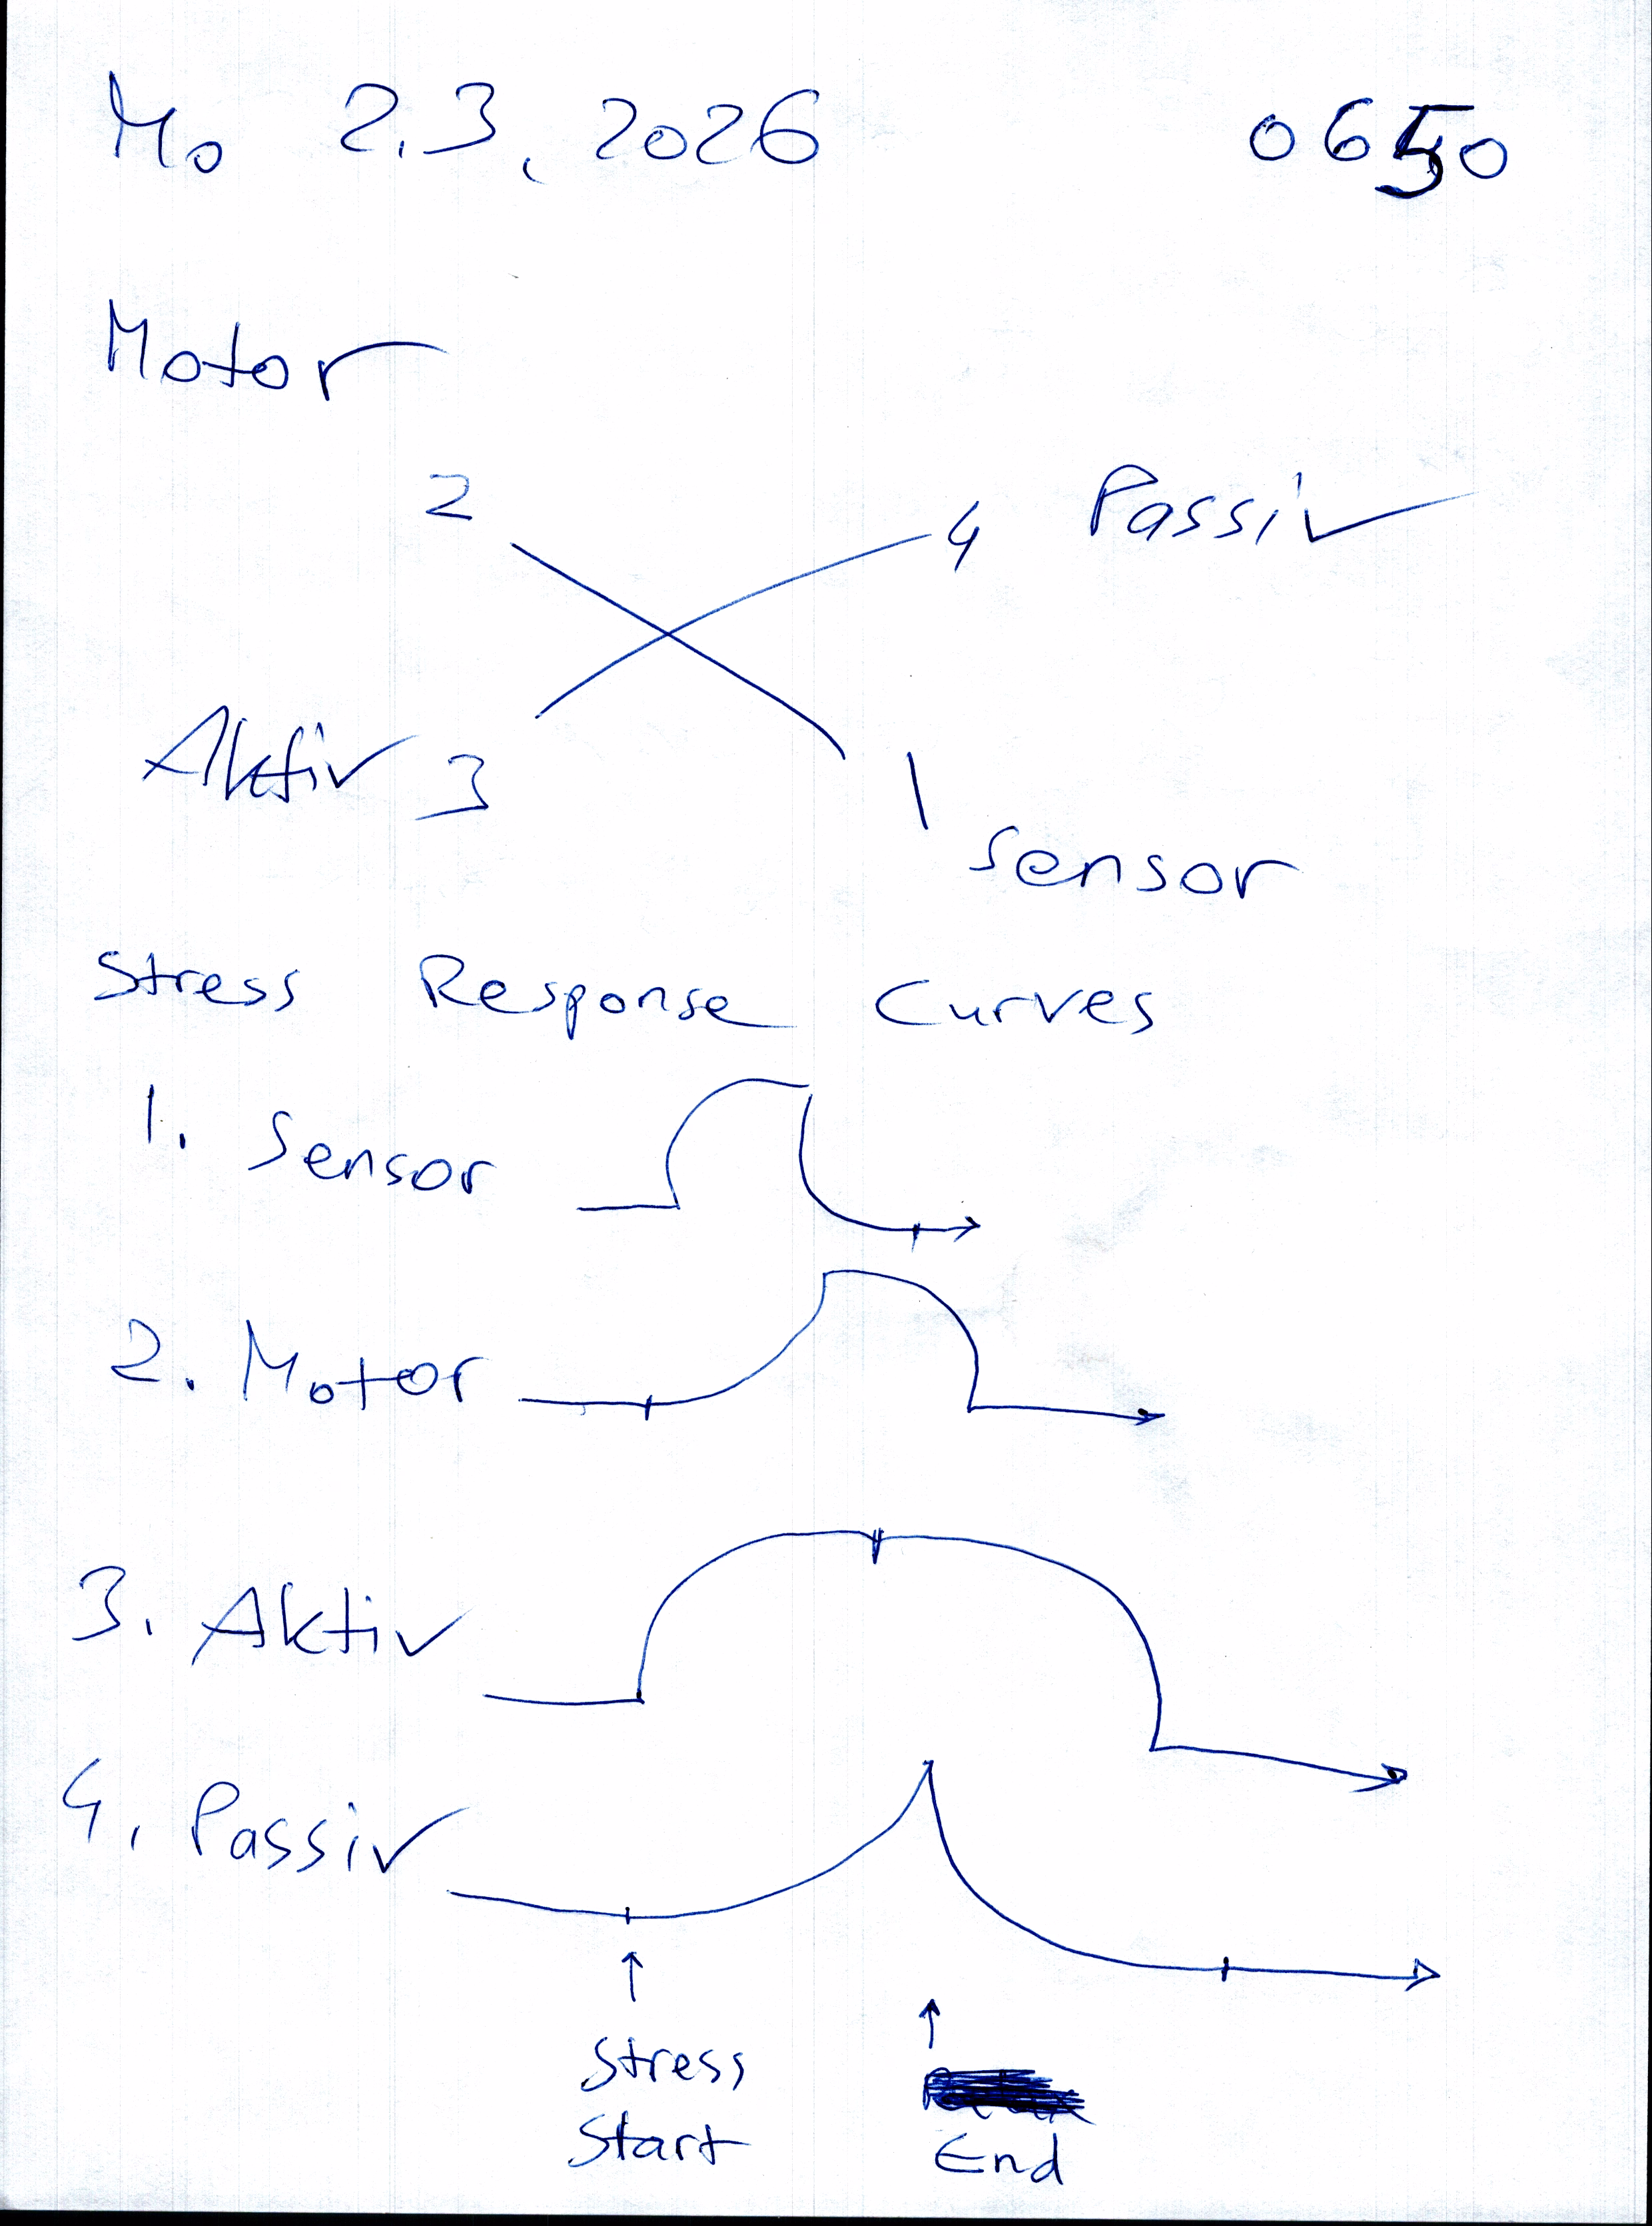 Mo 2.3.2026 0650
Motor
2
4 Passiv
Aktiv 3
1
Sensor
Stress Response Curves
1. Sensor
2. Motor
3. Aktiv
4. Passiv
Stress
Start
End